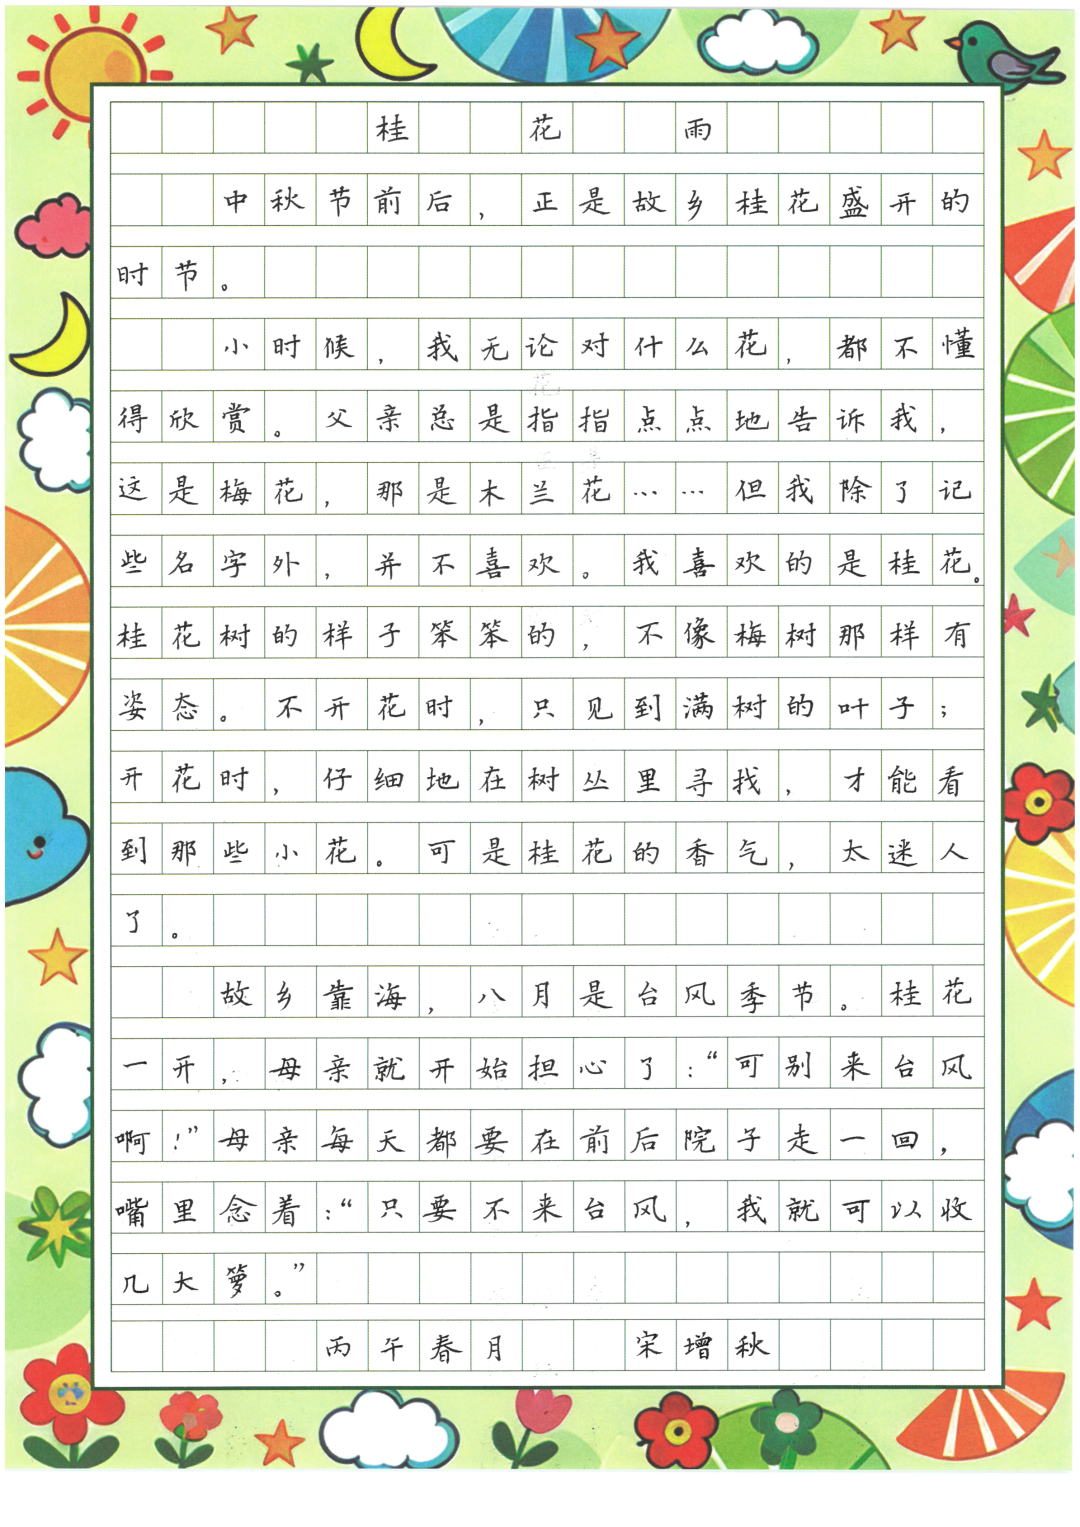 桂花雨
中秋节前后，正是故乡桂花盛开的
时节。
小时候，我无论对什么花，都不懂
得欣赏。父亲总是指指点点地告诉我，
这是梅花，那是木兰花……但我除了记
些名字外，并不喜欢。我喜欢的是桂花。
桂花树的样子笨笨的，不像梅树那样有
姿态。不开花时，只见到满树的叶子；
开花时，仔细地在树丛里寻找，才能看
到那些小花。可是桂花的香气，太迷人
了。
故乡靠海，八月是台风季节。桂花
一开，母亲就开始担心了：“可别来台风
啊！”母亲每天都要在前后院子走一回，
嘴里念着：“只要不来台风，我就可以收
几大箩。”
丙午春月 宋增秋